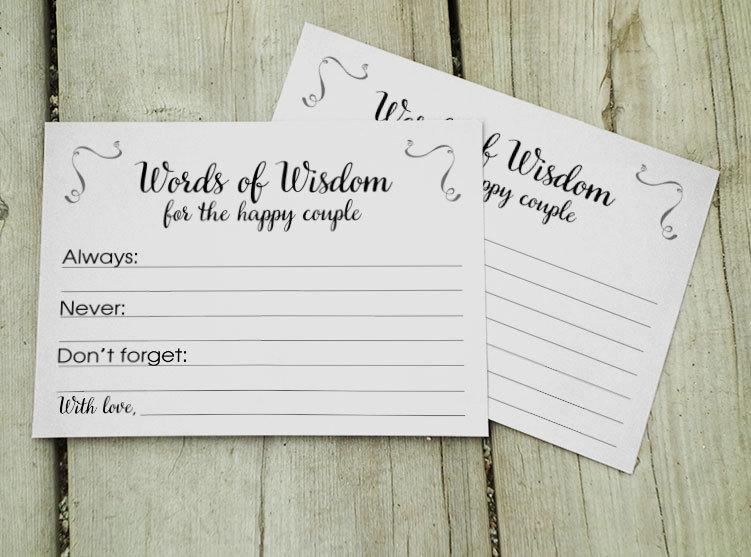 Words of Wisdom
for the happy couple
Always:
Never:
Don't forget:
With love,
Wisdom
couple